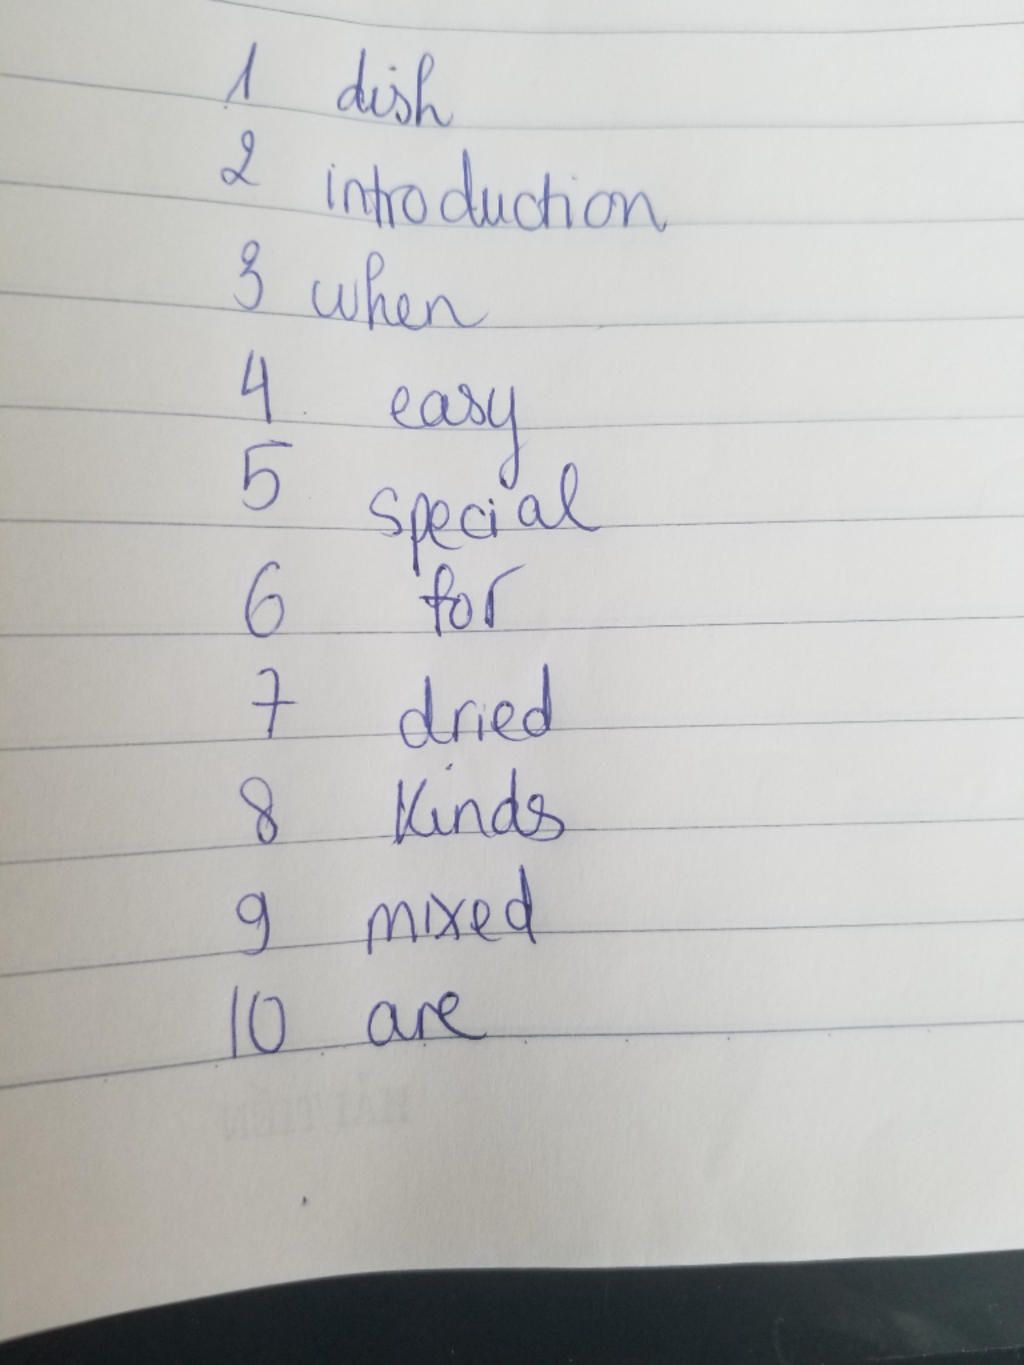 1 dish
2 introduction
3 when
4 easy
5 special
6 for
7 dried
8 Kinds
9 mixed
10 are